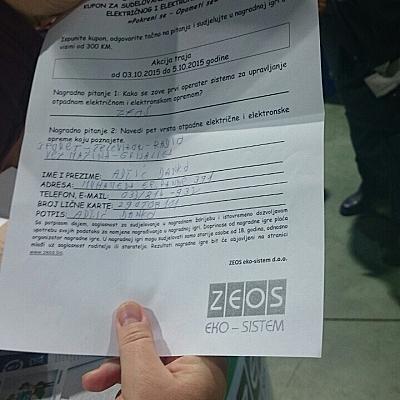 KUPON ZA SUDJELOVANJE
ELEKTRIČNOG I ELEKTRON
»Pokreni se - Opameti se«
Ispunite kupon, odgovorite tačno na pitanja i sudjelujte u nagradnoj igri
visini od 300 KM.
Akcija traja
od 03.10.2015 do 5.10.2015 godine
Nagradno pitanje 1: Kako se zove prvi operater sistema za upravljanje
otpadnom električnom i elektronskom opremom?
ZEOS
Nagradno pitanje 2: Navedi pet vrsta otpadne električne i elektronske
opreme koju poznajete.
TELEVIZOR - RADIO
IME I PREZIME:
ADRESA:
TELEFON, E-MAIL:
BROJ LIČNE KARTE:
POTPIS:
Sa potpisom dajem, saglasnost za sudjelovanje u nagradnom ždrijebu i istovremeno dozvoljavam
upotrebu svojih podataka za namjene nagrađivanja u nagradnoj igri. Doprinose od nagrade podmiruje
organizator nagradne igre. U nagradnoj igri mogu sudjelovati samo starije osobe od 18. godina, odnosno
mlađi uz saglasnost roditelja ili staratelja. Rezultati nagradne igre bit će objavljeni na stranici
www.zeos.ba.
ZEOS eko-sistem d.o.o.
ZEOS
EKO - SISTEM